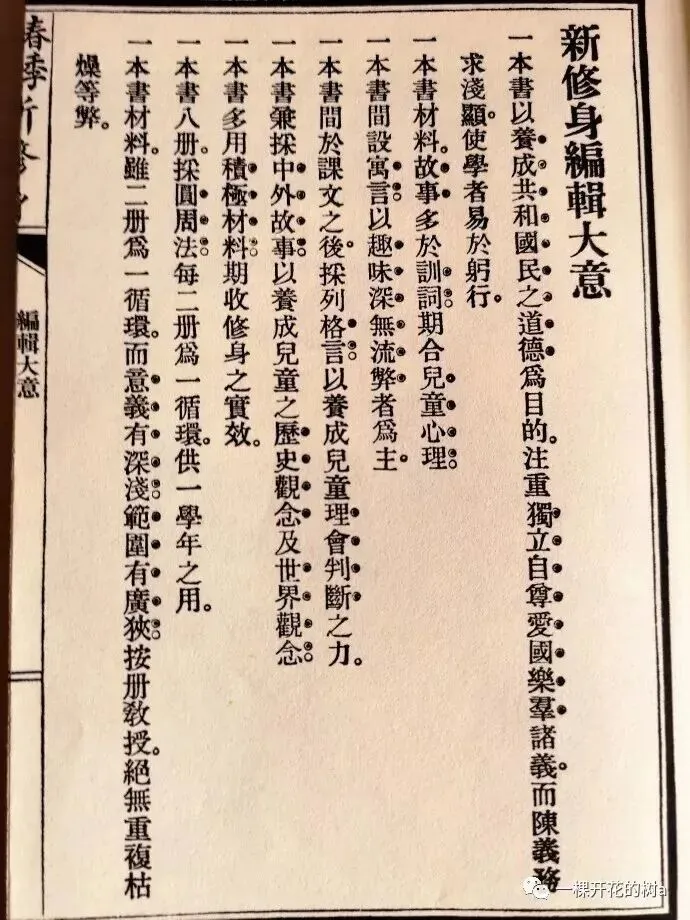 新修身編輯大意
一本書以養成共和國民之道德爲目的。注重獨立自尊愛國樂羣諸義。而陳義務
求淺顯。使學者易於躬行。
一本書材料。故事多於訓詞。期合兒童心理。
一本書間設寓言。以趣味深無流弊者爲主。
一本書間於課文之後。採列格言。以養成兒童理會判斷之力。
一本書兼採中外故事。以養成兒童之歷史觀念及世界觀念。
一本書多用積極材料。期收修身之實效。
一本書八册。採圓周法。每二册爲一循環。供一學年之用。
一本書材料。雖二册爲一循環。而意義有深淺。範圍有廣狹。按册敎授。絕無重複枯
燥等弊。
春季新修身
編輯大意
一棵开花的树a